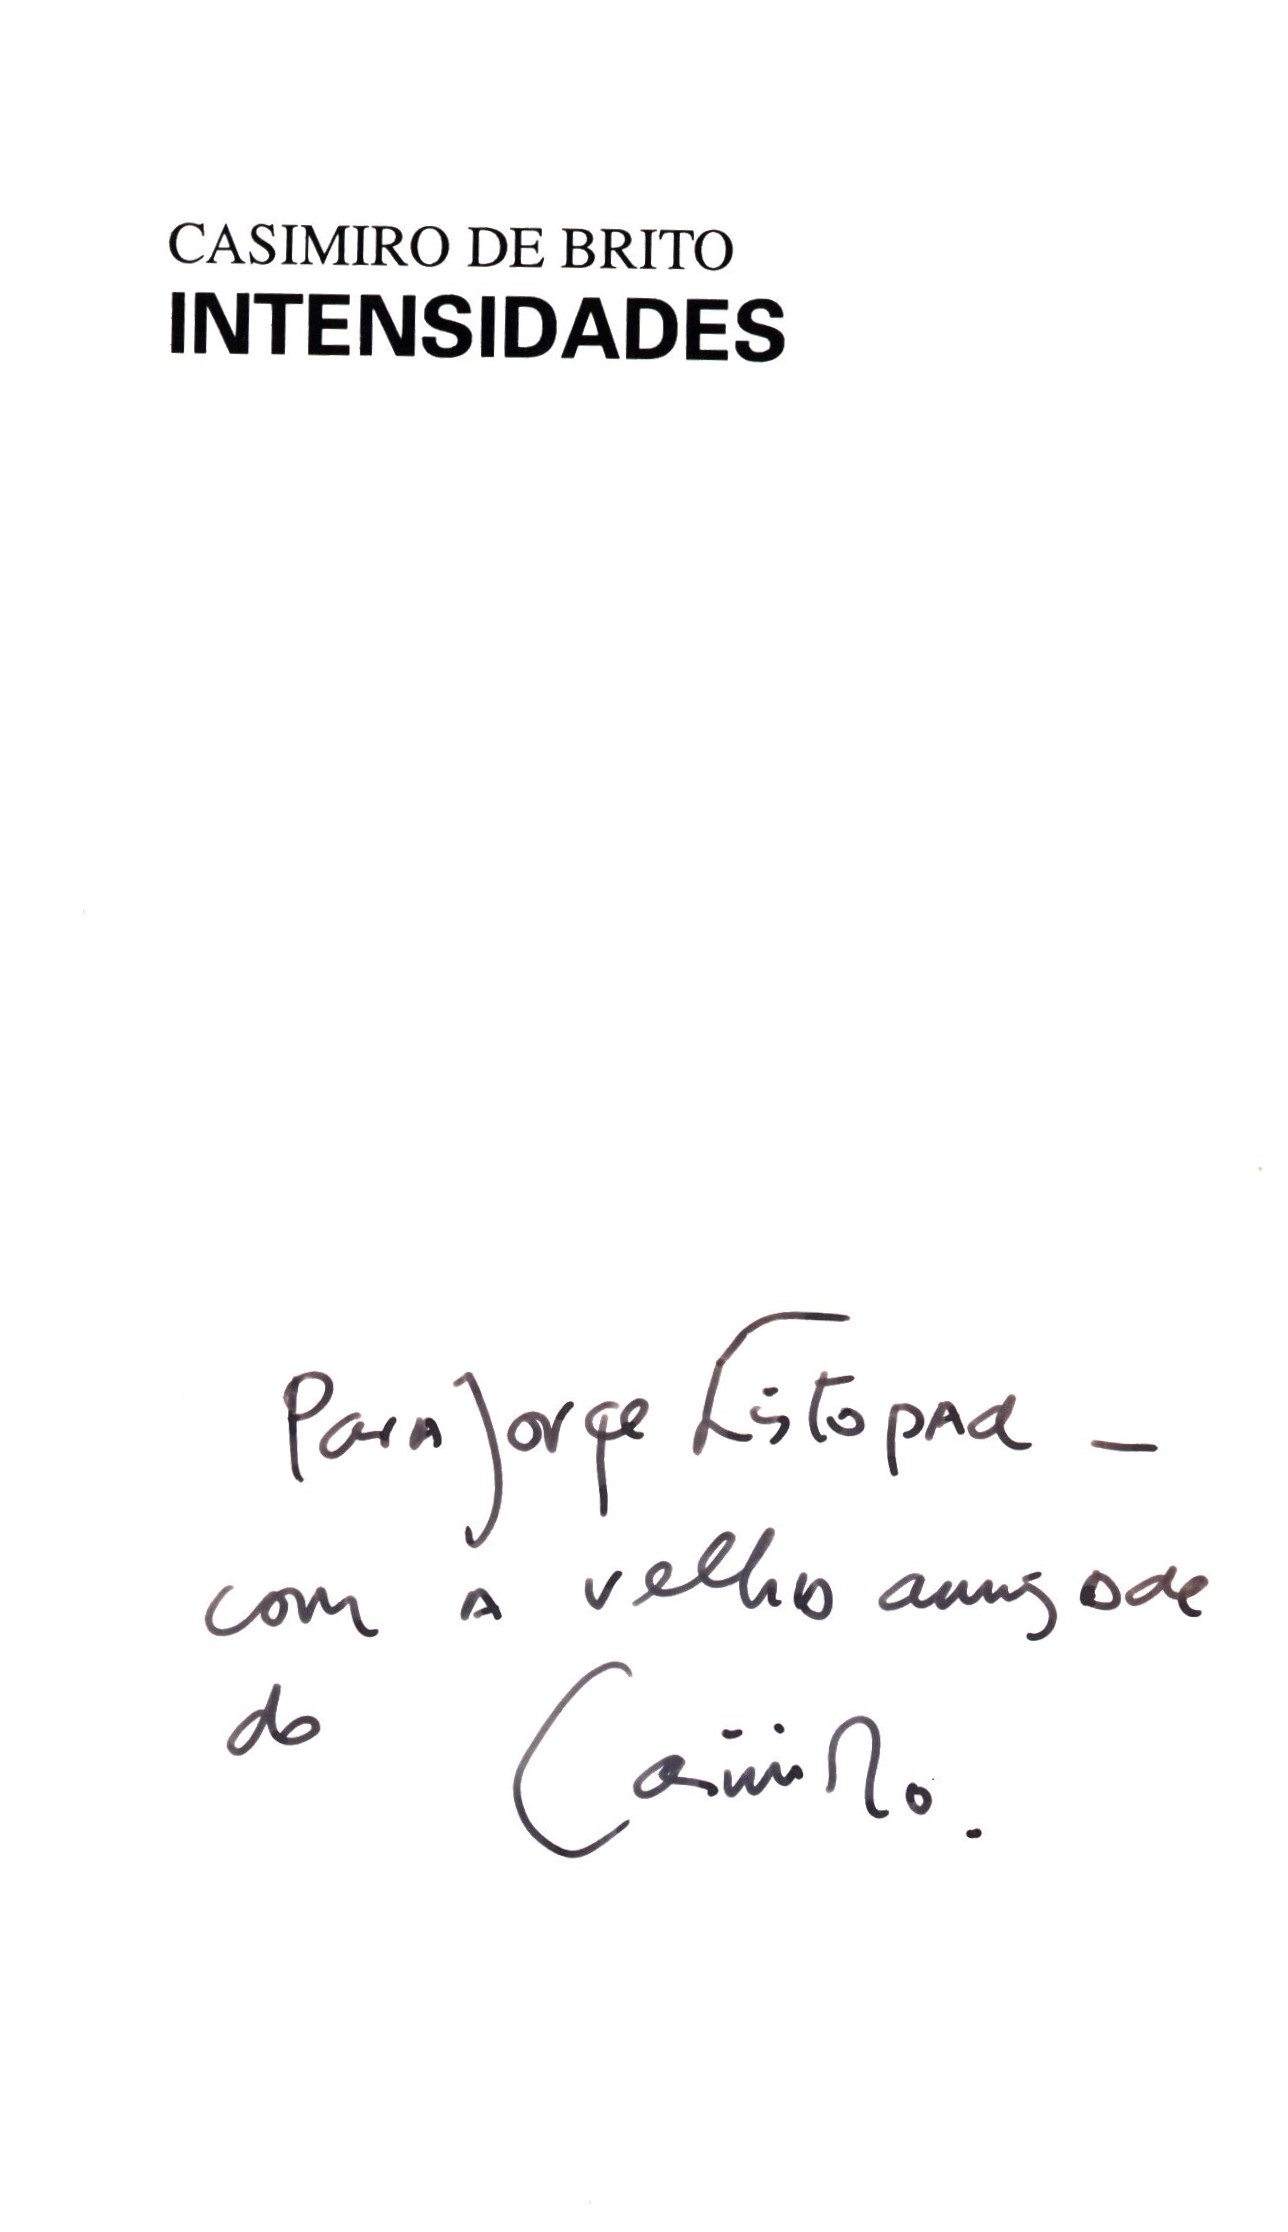 CASIMIRO DE BRITO
INTENSIDADES
Para Jorge Listopad —
com a velha amizade
do Casimiro.